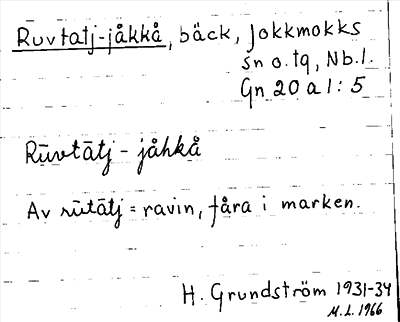 Ruvtatj-jåkkå, bäck, Jokkmokks
sn o. tg, Nb.l.
Gn 20 a 1:5
Rūvtātj - jåhkå
Av rūtātj = ravin, fåra i marken.
H. Grundström 1931-34
M.L. 1966